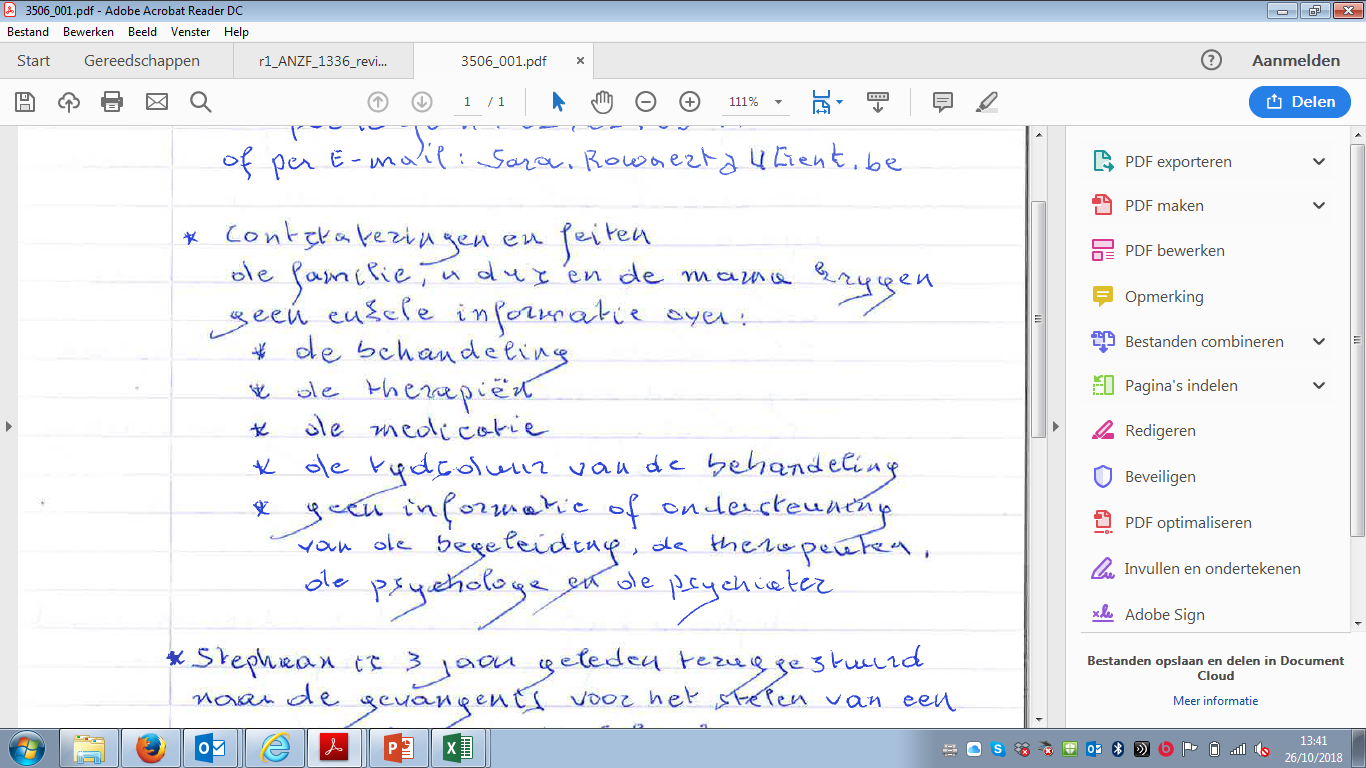 3506_001.pdf - Adobe Acrobat Reader DC
Bestand Bewerken Beeld Venster Help
Start Gereedschappen r1_ANZF_1336_revi... 3506_001.pdf × ? Aanmelden
1 / 1 111% Delen
of per E-mail: Sara.Rowaert@UGent.be
* Contstateringen en feiten
de familie, u dus en de mama krygen
geen enkele informatie over:
* de behandeling
* de therapiën
* de medicatie
* de tydsduur van de behandeling
* geen informatie of ondersteuning
van de begeleiding, de therapeuten,
de psychologe en de psychiater
* Stephaan is 3 jaar geleden teruggestuurd
naar de gevangenis voor het stelen van een
PDF exporteren
PDF maken
PDF bewerken
Opmerking
Bestanden combineren
Pagina's indelen
Redigeren
Beveiligen
PDF optimaliseren
Invullen en ondertekenen
Adobe Sign
Bestanden opslaan en delen in Document
Cloud
Meer informatie
13:41
26/10/2018